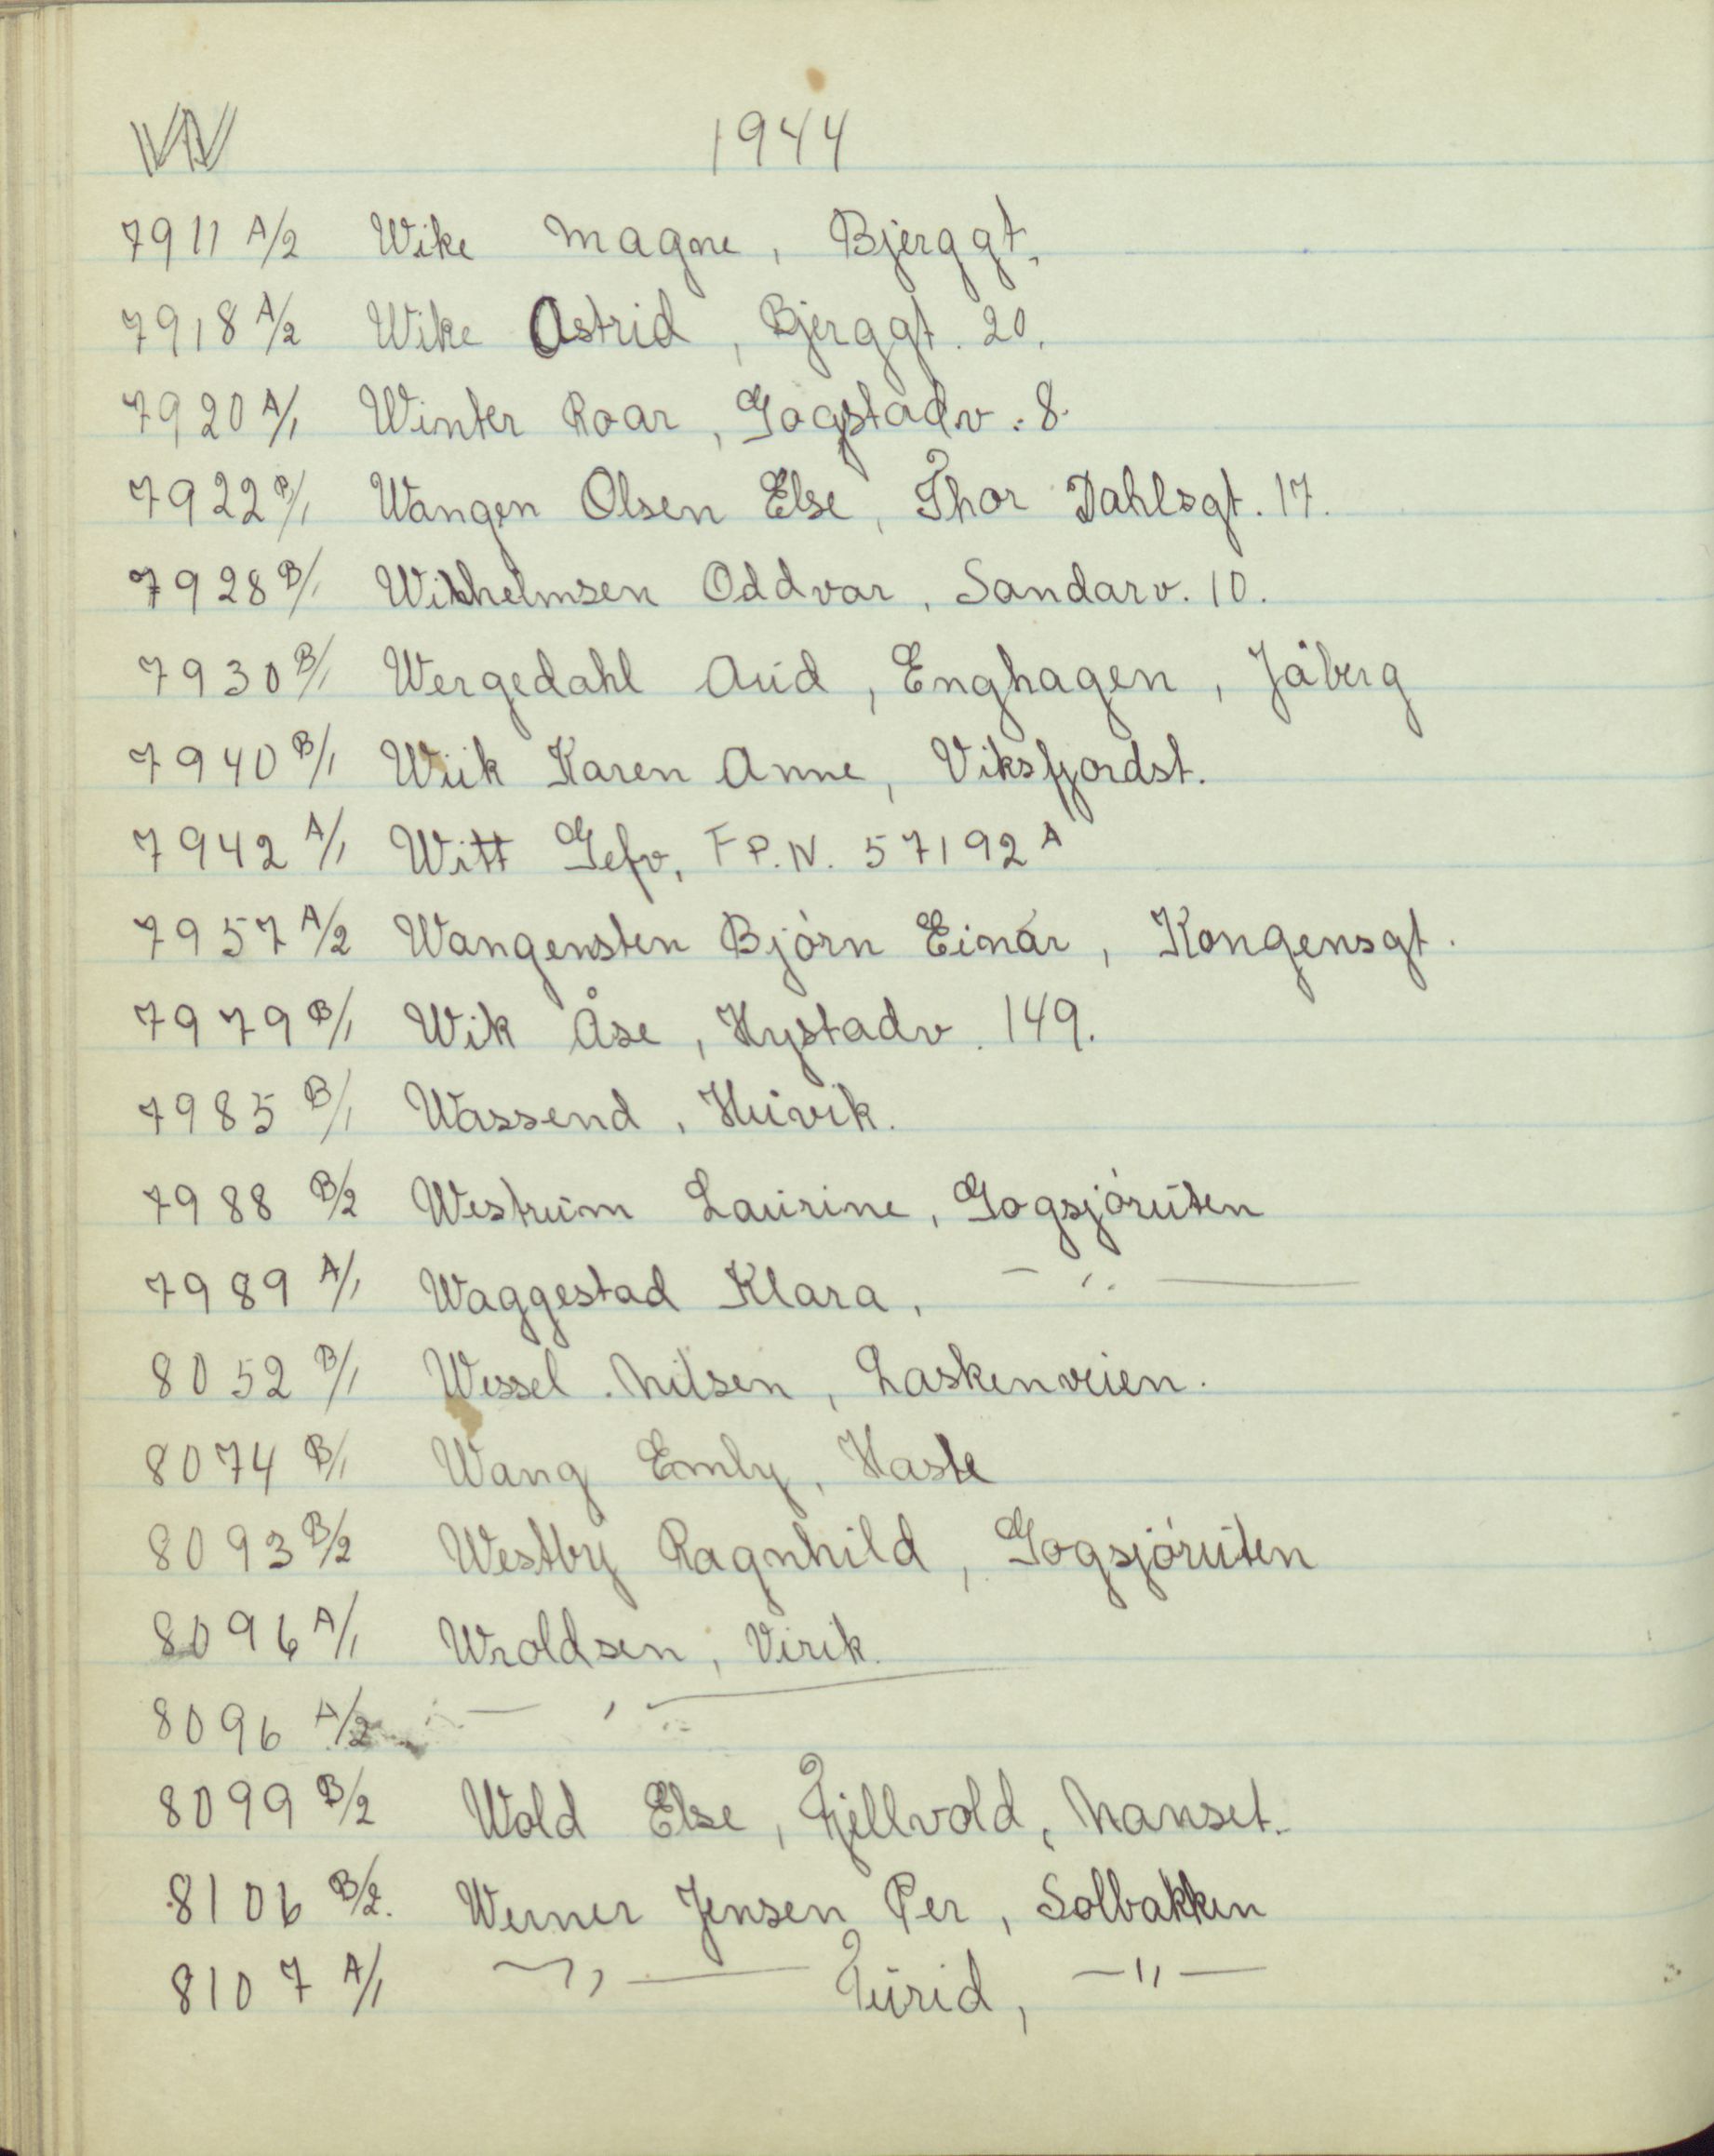 W 1944
7911 A/2 Wike Magne, Bjerggt.
7918 A/2 Wike Astrid, Bjerggt. 20.
7920 A/1 Winter Roar, Gogstadv. 8.
7922 B/1 Wangen Olsen Else, Thor Dahlsgt. 17.
7928 B/1 Wilhelmsen Oddvar, Sandarv. 10.
7930 B/1 Wergedahl Aud, Enghagen, Jåberg
7940 B/1 Wiik Karen Anne, Viksfjordst.
7942 A/1 Witt Gefv, F P. N. 57192 A
7957 A/2 Wangensten Bjórn Einar, Kongensgt.
7979 B/1 Wik Åse, Hystadv. 149.
7985 B/1 Wassend, Huvik.
7988 B/2 Westrum Laurine, Gogsjóruten
7989 A/1 Waggestad Klara, — " —
8052 B/1 Wessel. Nilsen, Laskenveien.
8074 B/1 Wang Emly, Hasle
8093 B/2 Westby Ragnhild, Gogsjóruten
8096 A/1 Wroldsen, Virik.
8096 A/2 — " —
8099 B/2 Wold Else, Fjellvold, Nanset.
8106 B/2. Werner Jensen Per, Solbakken
8107 A/1 — " — Turid, — " —